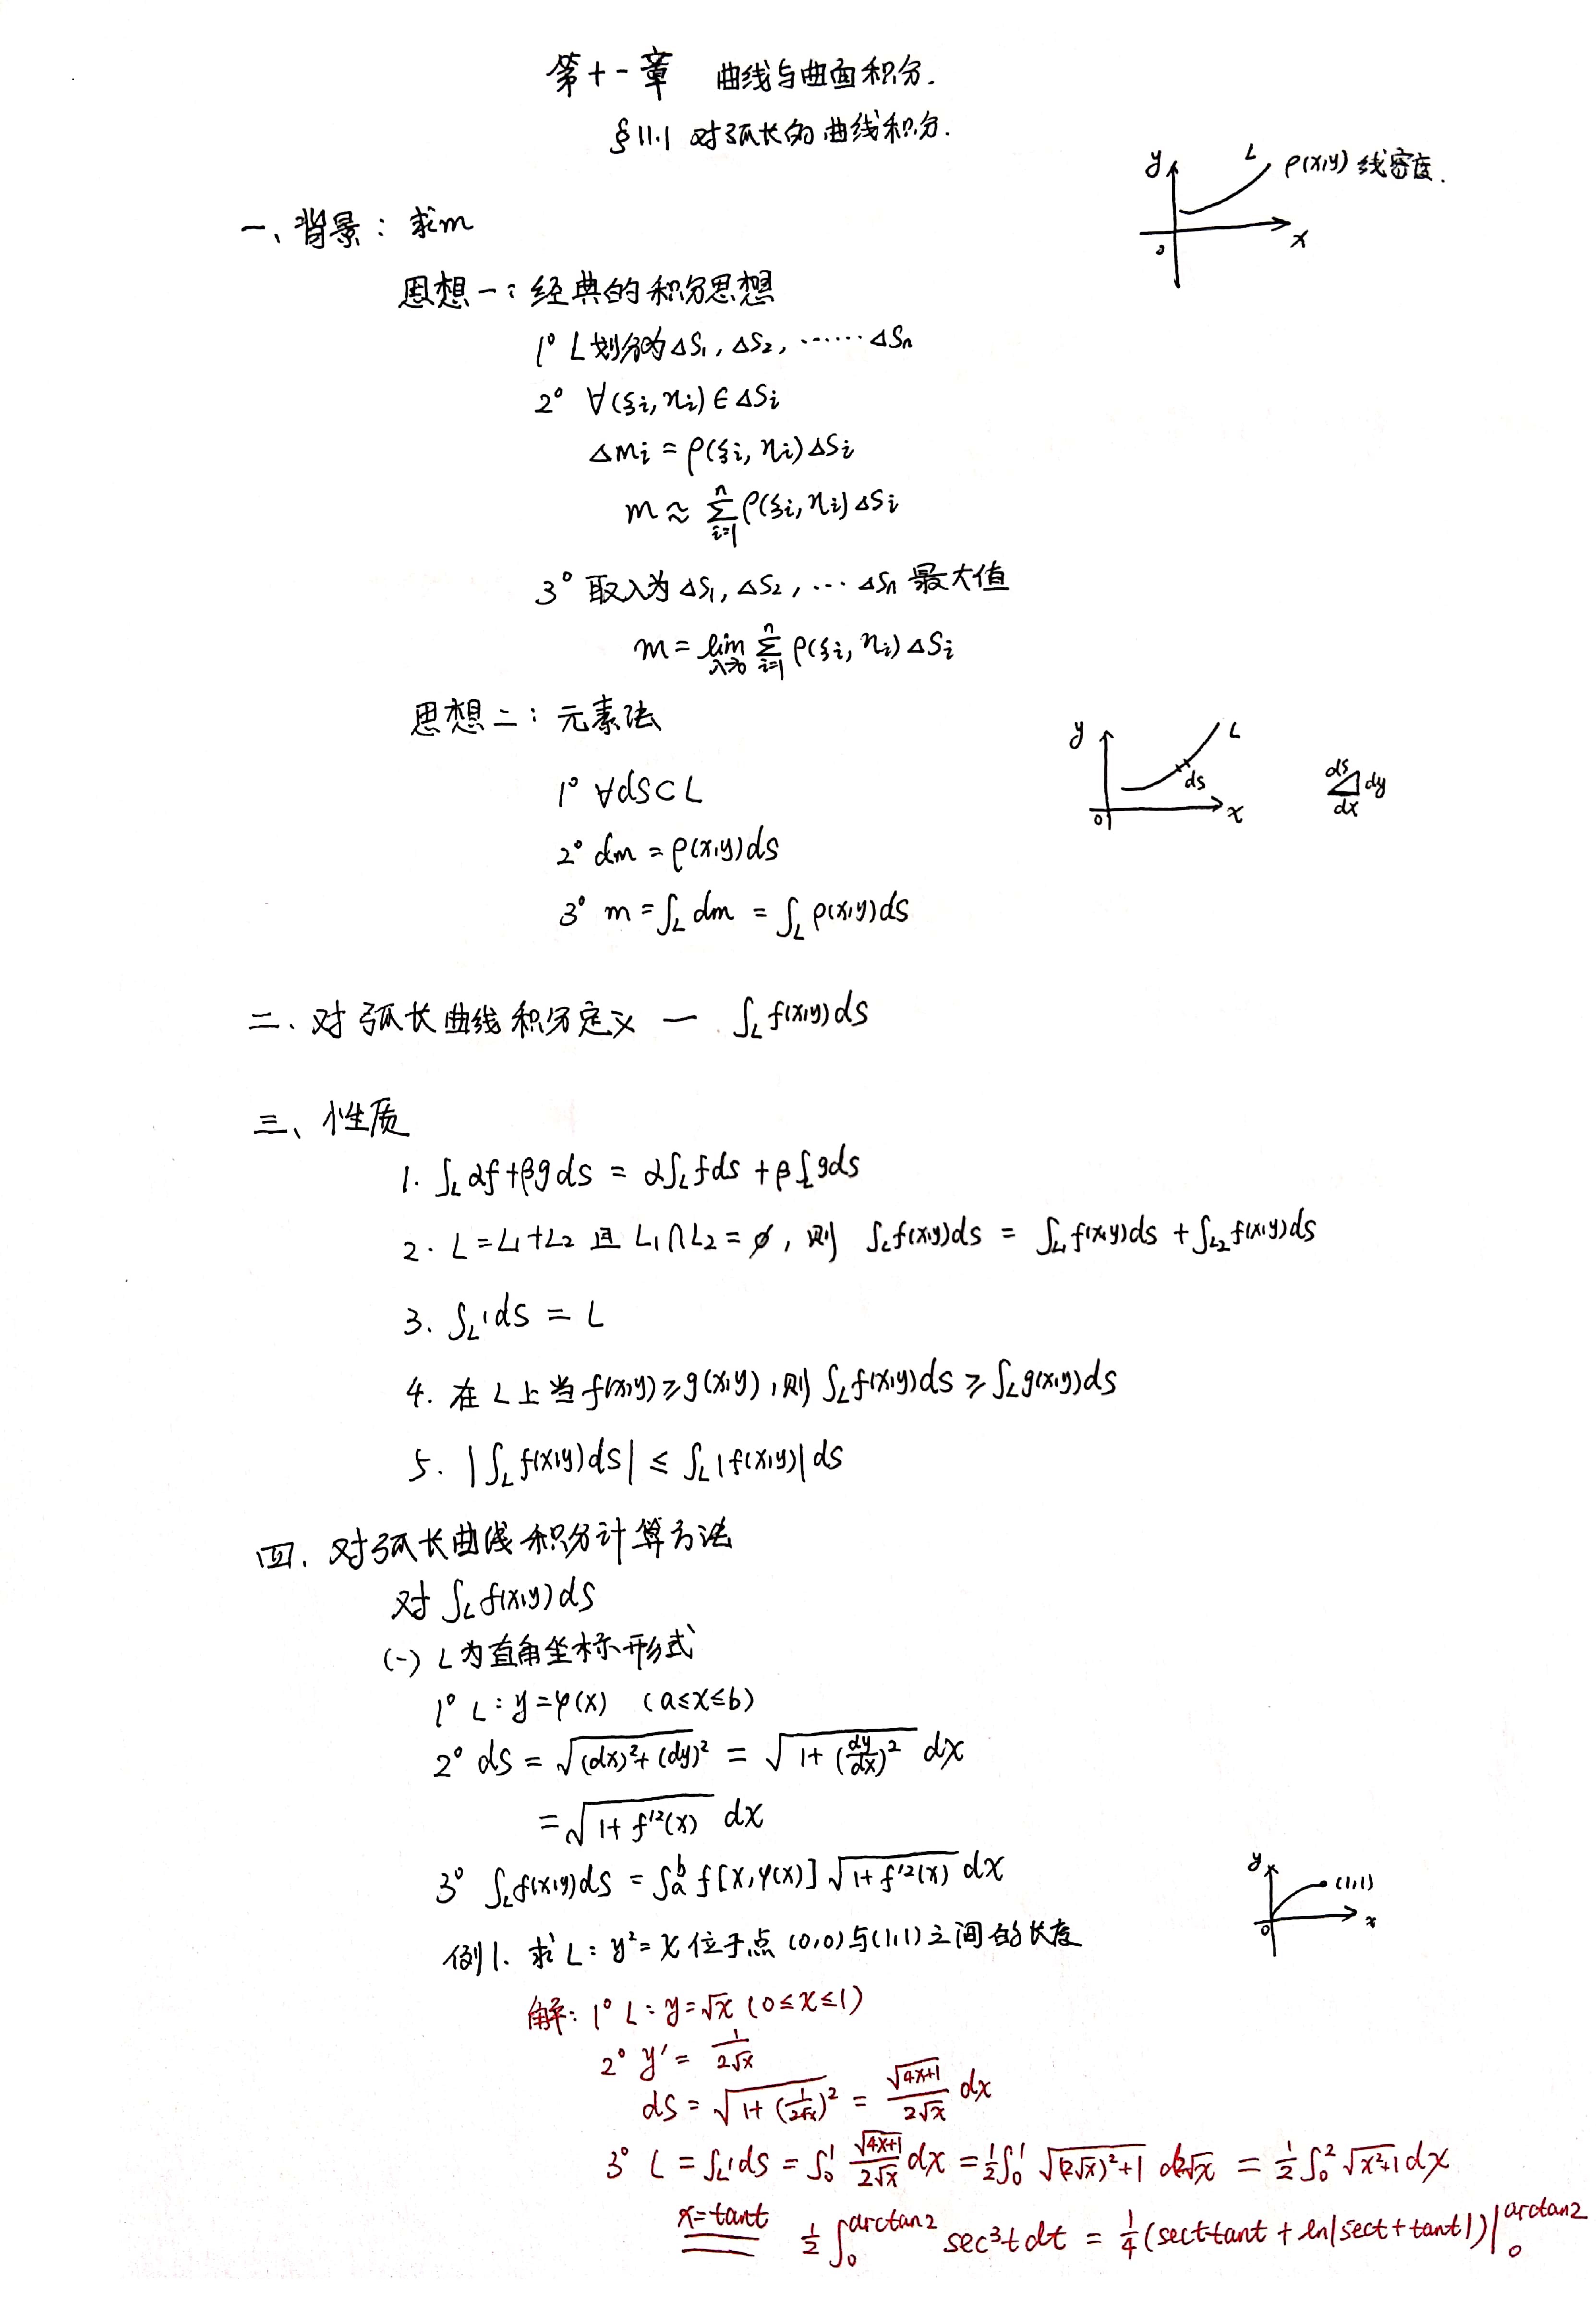 第十一章 曲线与曲面积分.
§11.1 对弧长的曲线积分.
y L ρ(x,y) 线密度.
0 x
一、背景: 求m
思想一: 经典的积分思想
1° L划分为ΔS₁, ΔS₂, ⋯⋯ΔSₙ
2° ∀(ξi, ηi)∈ΔSi
Δmi = ρ(ξi, ηi)ΔSi
m ≈ ∑_{i=1}^{n} ρ(ξi, ηi)ΔSi
3° 取λ为ΔS₁, ΔS₂, ⋯ΔSₙ最大值
m = lim_{λ→0} ∑_{i=1}^{n} ρ(ξi, ηi)ΔSi
思想二: 元素法
y L ds
0 x
ds dy
dx
1° ∀ds⊂L
2° dm = ρ(x,y)ds
3° m = ∫_L dm = ∫_L ρ(x,y)ds
二. 对弧长曲线积分定义 — ∫_L f(x,y)ds
三、性质
1. ∫_L αf+βg ds = α∫_L fds + β∫_L gds
2. L=L₁+L₂ 且 L₁∩L₂=∅, 则 ∫_L f(x,y)ds = ∫_{L₁} f(x,y)ds + ∫_{L₂} f(x,y)ds
3. ∫_L 1ds = L
4. 在L上当f(x,y)≥g(x,y), 则∫_L f(x,y)ds ≥ ∫_L g(x,y)ds
5. |∫_L f(x,y)ds| ≤ ∫_L |f(x,y)|ds
四. 对弧长曲线积分计算方法
对∫_L f(x,y)ds
(一) L为直角坐标形式
1° L: y=φ(x) (a≤x≤b)
2° ds = √((dx)²+(dy)²) = √(1+(dy/dx)²) dx
= √(1+f'²(x)) dx
3° ∫_L f(x,y)ds = ∫_a^b f[x,φ(x)]√(1+f'²(x)) dx
y (1,1)
0 x
例1. 求L: y²=x位于点(0,0)与(1,1)之间的长度
解: 1° L: y=√x (0≤x≤1)
2° y' = 1/(2√x)
ds = √(1+(1/(2√x))²) = √(4x+1)/(2√x) dx
3° L = ∫_L 1ds = ∫_0^1 √(4x+1)/(2√x) dx = ½∫_0^1 √((2√x)²+1) d2√x = ½∫_0^2 √(x²+1) dx
x=tant ½∫_0^{arctan2} sec³t dt = ¼(sect·tant + ln|sect+tant|)|_0^{arctan2}